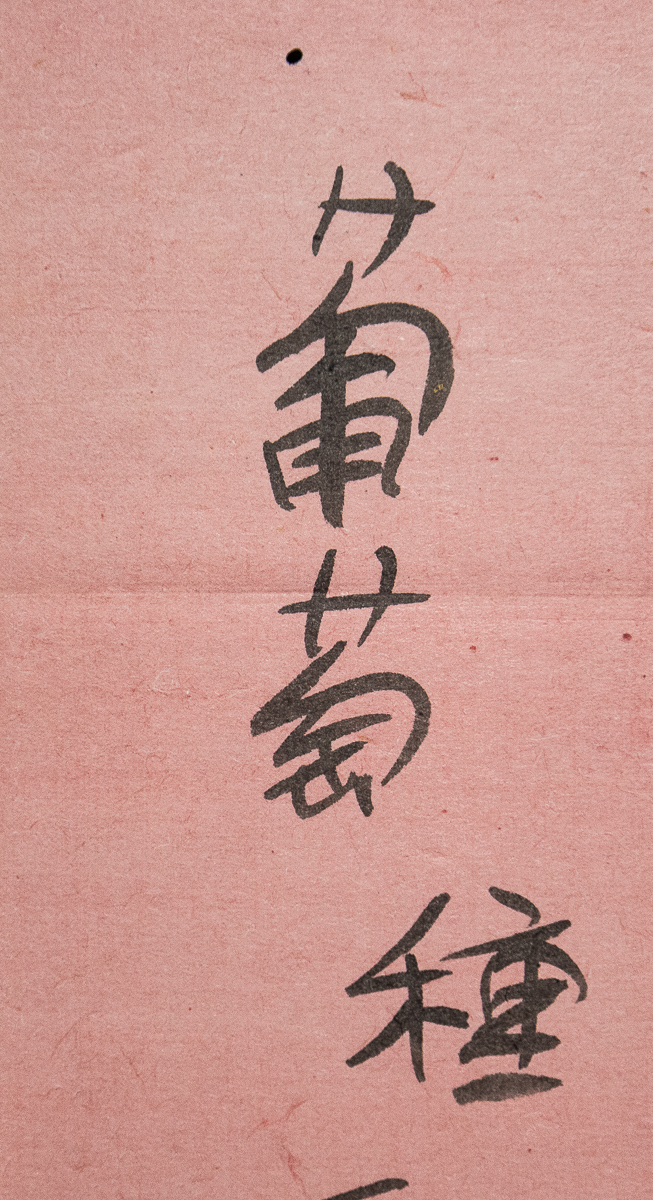 葡萄種